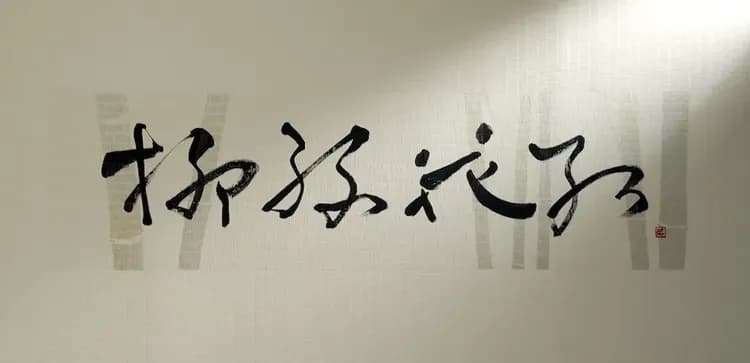 柳绿花红